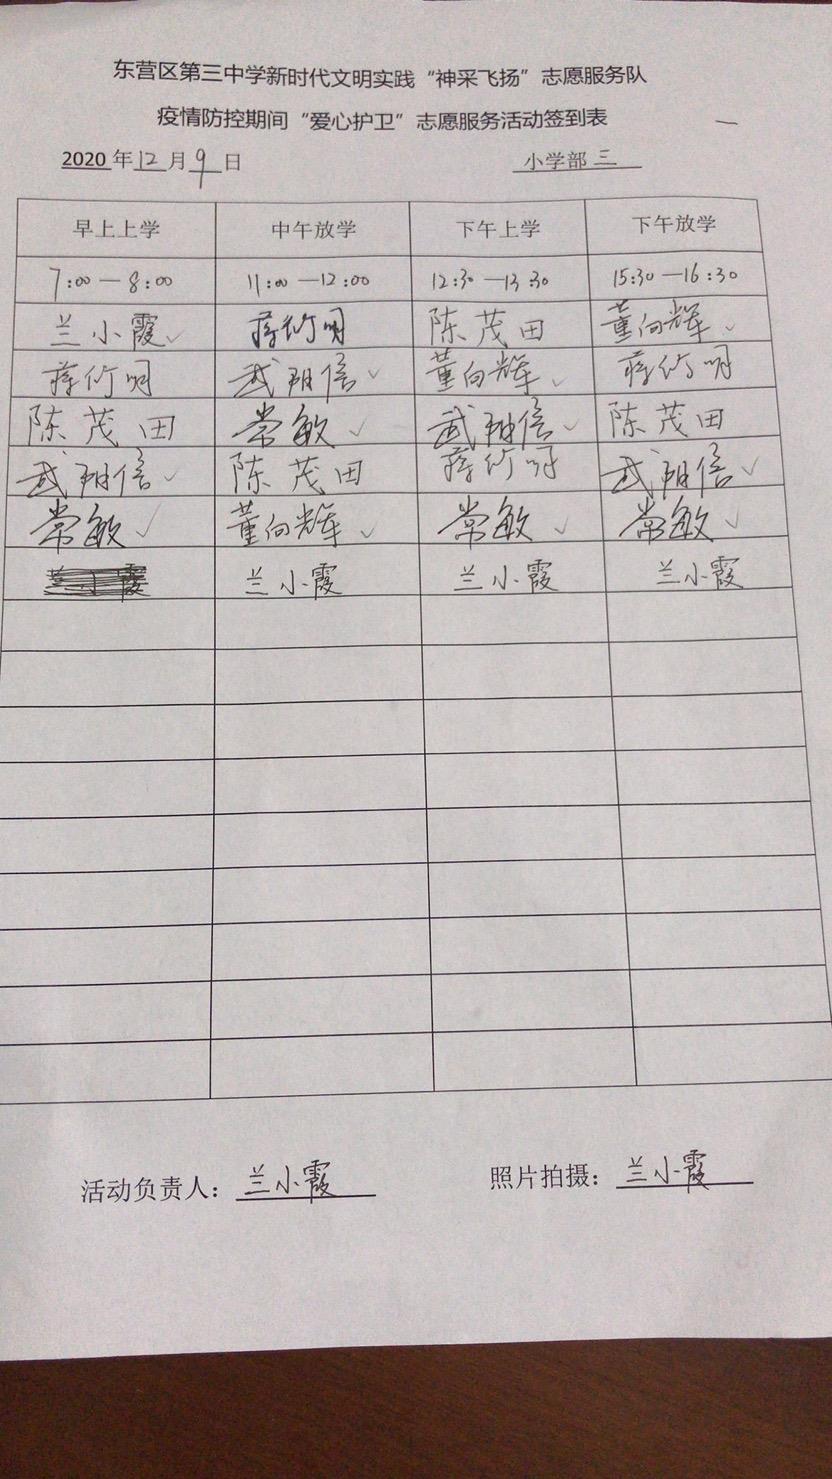 东营区第三中学新时代文明实践“神采飞扬”志愿服务队
疫情防控期间“爱心护卫”志愿服务活动签到表
2020年12月9日 小学部三
早上上学 中午放学 下午上学 下午放学
7:00—8:00 11:00—12:00 12:30—13:30 15:30—16:30
兰小霞✓ 蒋竹明 陈茂田 董向辉✓
蒋竹明 武翔信✓ 董向辉✓ 蒋竹明
陈茂田 常敏✓ 武翔信✓ 陈茂田
武翔信✓ 陈茂田 蒋竹明 武翔信✓
常敏✓ 董向辉✓ 常敏✓ 常敏✓
兰小霞 兰小霞 兰小霞
活动负责人：兰小霞 照片拍摄：兰小霞